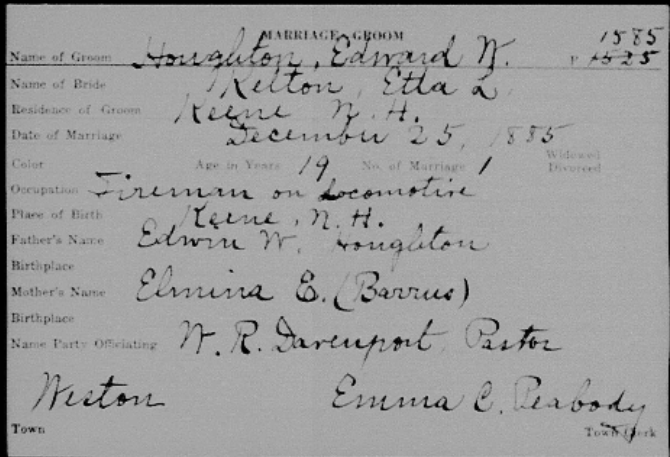 MARRIAGE, GROOM
1585
Name of Groom Houghton, Edward W. P 1525
Name of Bride Kelton, Etta L
Residence of Groom Keene N. H.
Date of Marriage December 25, 1885
Widowed
Color Age in Years 19 No. of Marriage 1 Divorced
Occupation Fireman on Locomotive
Place of Birth Keene, N. H.
Father's Name Edwin W. Houghton
Birthplace
Mother's Name Elmina E. (Barrus)
Birthplace
Name Party Officiating W. R. Davenport, Pastor
Weston Emma C. Peabody
Town Town Clerk